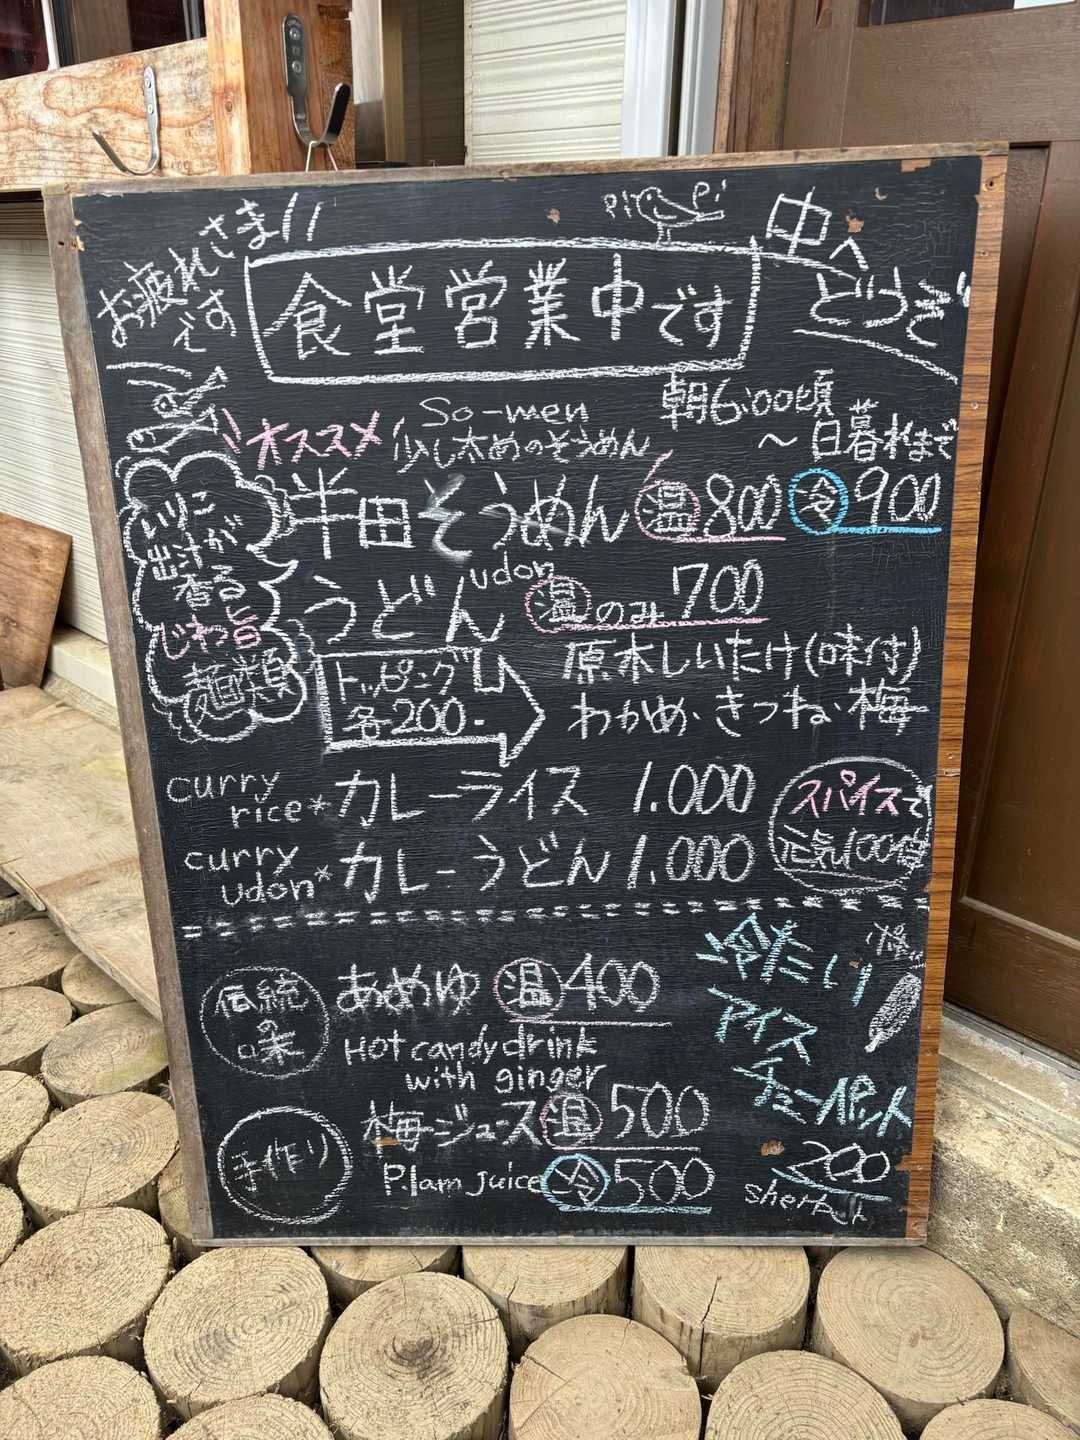 お疲れさま!!
です
pi pi
中へ
どうぞ
食堂営業中です
朝6:00頃
〜日暮れまで
So-men
オススメ 少し太めのそうめん
半田そうめん 温 800 冷 900
いりこ
出汁が
香る
じわ旨
麺類
udon
うどん 温のみ 700
トッピング
各200-
原木しいたけ(味付)
わかめ・きつね・梅
curry
rice* カレーライス 1.000
curry
udon* カレーうどん 1.000
スパイスで
元気100倍
伝統
の
味
あめゆ 温 400
Hot candy drink
with ginger
手作り
梅ジュース 温 500
P.lam juice 冷 500
冷たい
アイス
チューペット
200
sherbet